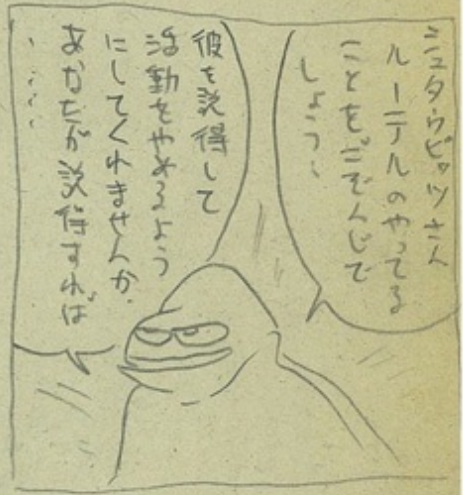 シュタウピッツさん
ルーテルのやってる
ことを、ごぞんじで
しょう〜
彼を説得して
活動をやめるよう
にしてくれませんか.
あなたが説得すれば
・・・・